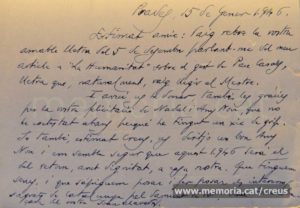 Prades, 15 de Gener 1946.
Estimat amic: Vaig rebre la vostra
amable lletra del 5 de Desembre parlant-me del meu
article a "La Humanitat" sobre el gest de Pau Casals,
lletra que, naturalment, vaig llegir al Mestre.
I ara us dono també les gràcies
per la vostra felicitació de Nadal i Any Nou, que no
he contestat abans perquè he tingut un xic de grip.
Jo també, estimat Creus, us desitjo un bon Any
Nou i em sembla segur que aquest 1946 serà el
del retorn, amb dignitat, a casa nostra. Que tinguem
seny, i que sapiguem posar
www.memoria.cat/creus